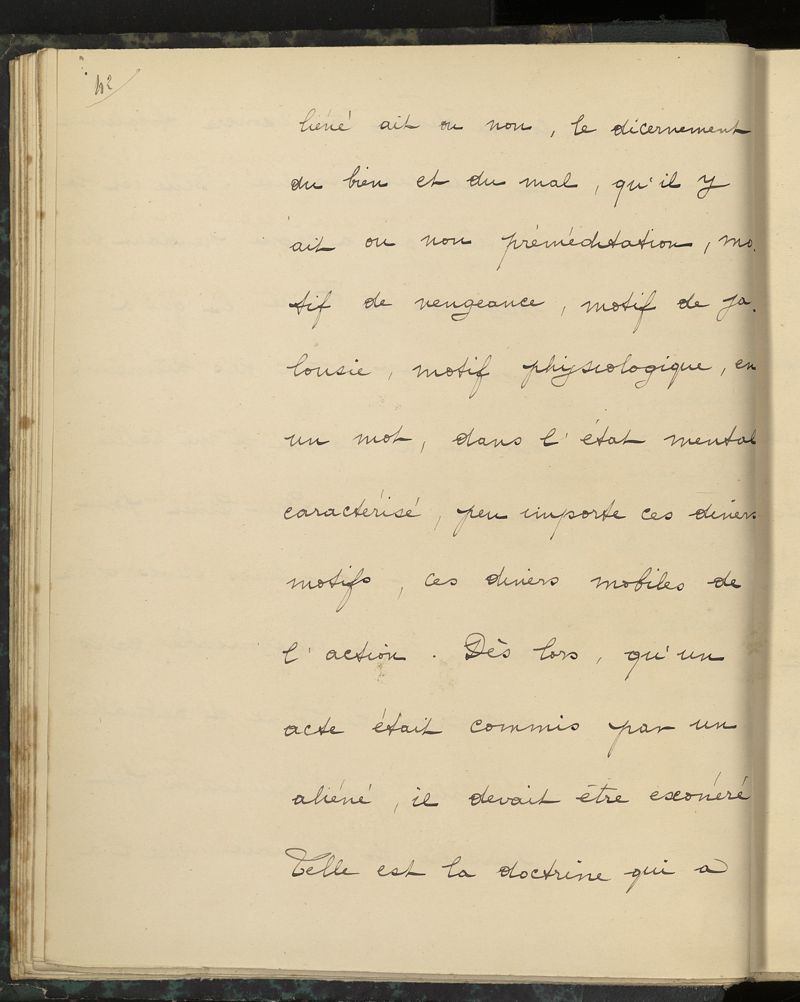 42
liéné ait ou non, le dicernement
du bien et du mal, qu'il y
ait ou non préméditation, mo.
tif de vengeance, motif de ja.
lousie, motif physiologique, en
un mot, dans l'état mental
caractérisé, peu importe ces divers
motifs, ces divers mobiles de
l'action. Dès lors, qu'un
acte était commis par un
aliéné, il devait être exonéré
Telle est la doctrine qui a